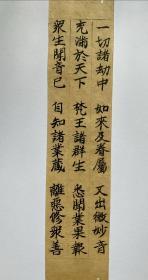 一切諸劫中 如來及眷屬 又出微妙音
充滿於天下 梵王諸群生 悉聞業果報
眾生聞音已 自知諸業藏 離惡修眾善